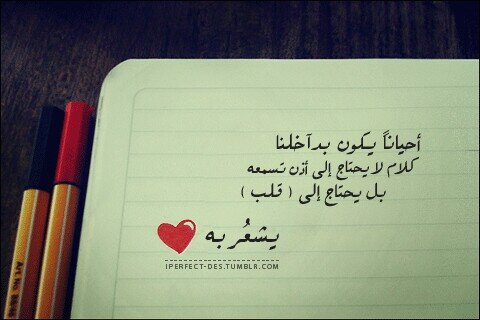 أحياناً يكون بدآخلنا
كلام لا يحتاج إلى أذن تسمعه
بل يحتاج إلى ( قلب )
يشعُر به
IPERFECT-DES.TUMBLR.COM